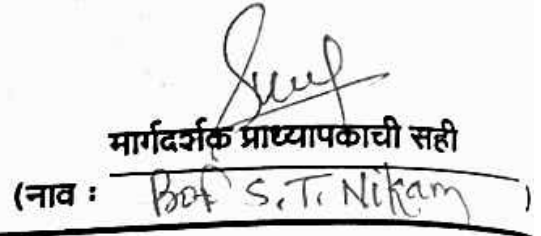 मार्गदर्शक प्राध्यापकाची सही
(नाव : Prof S. T. Nikam )